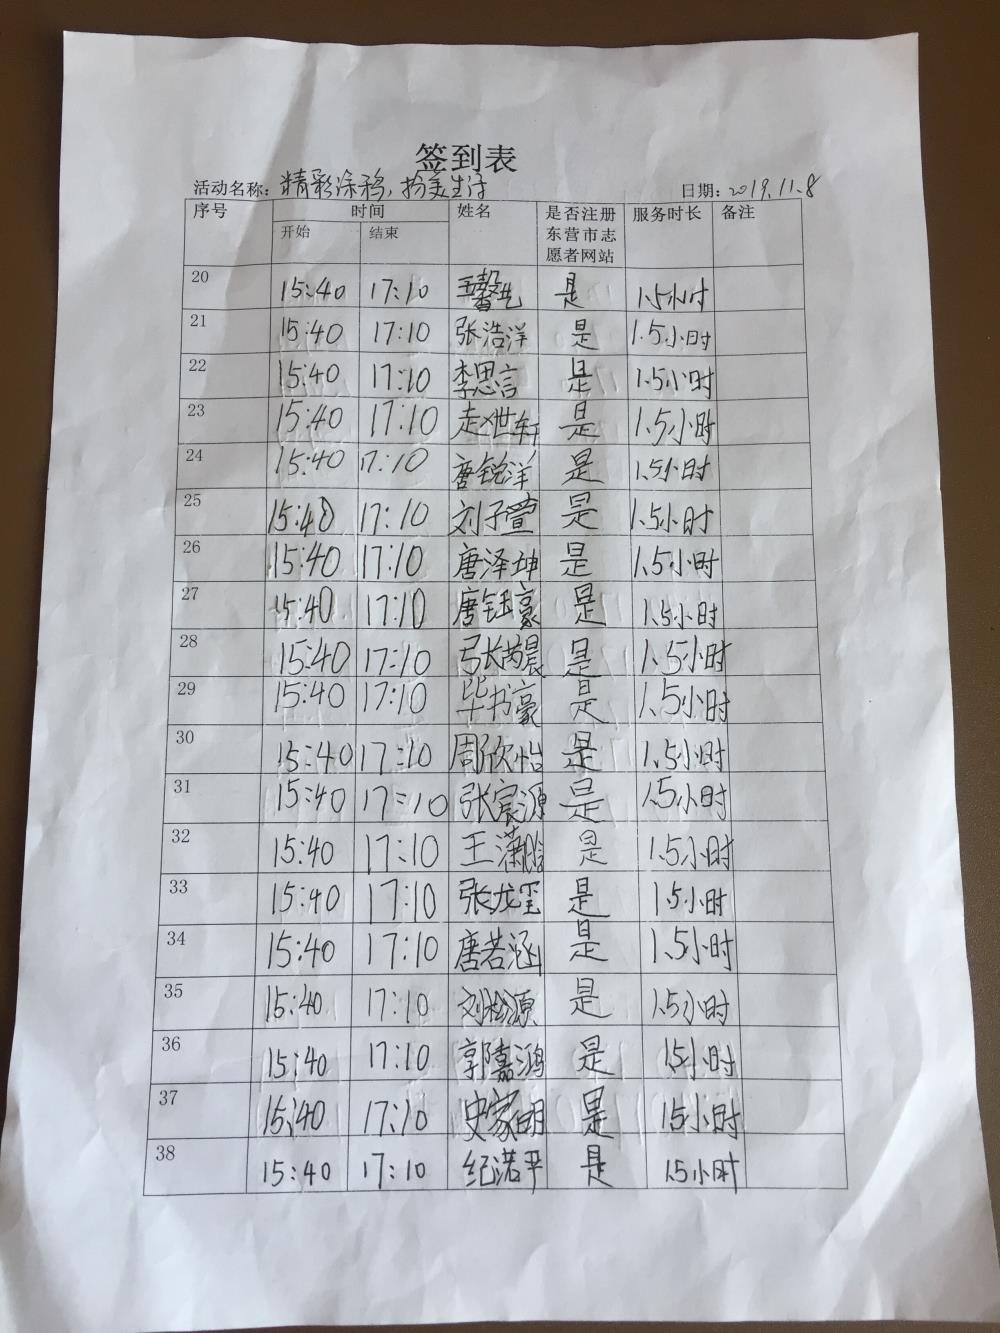 签到表
活动名称：精彩涂鸦，扮美生活 日期：2019.11.8
序号 时间 姓名 是否注册东营市志愿者网站 服务时长 备注
开始 结束
20 15:40 17:10 王馨 是 1.5小时
21 15:40 17:10 张浩洋 是 1.5小时
22 15:40 17:10 李思言 是 1.5小时
23 15:40 17:10 赵世轩 是 1.5小时
24 15:40 17:10 唐锐洋 是 1.5小时
25 15:40 17:10 刘子萱 是 1.5小时
26 15:40 17:10 唐泽坤 是 1.5小时
27 15:40 17:10 唐钰豪 是 1.5小时
28 15:40 17:10 张芮晨 是 1.5小时
29 15:40 17:10 毕书豪 是 1.5小时
30 15:40 17:10 周欣怡 是 1.5小时
31 15:40 17:10 张宸源 是 1.5小时
32 15:40 17:10 王潇晗 是 1.5小时
33 15:40 17:10 张龙玺 是 1.5小时
34 15:40 17:10 唐若涵 是 1.5小时
35 15:40 17:10 刘松源 是 1.5小时
36 15:40 17:10 郭嘉鸿 是 1.5小时
37 15:40 17:10 史家明 是 1.5小时
38 15:40 17:10 纪诺平 是 1.5小时